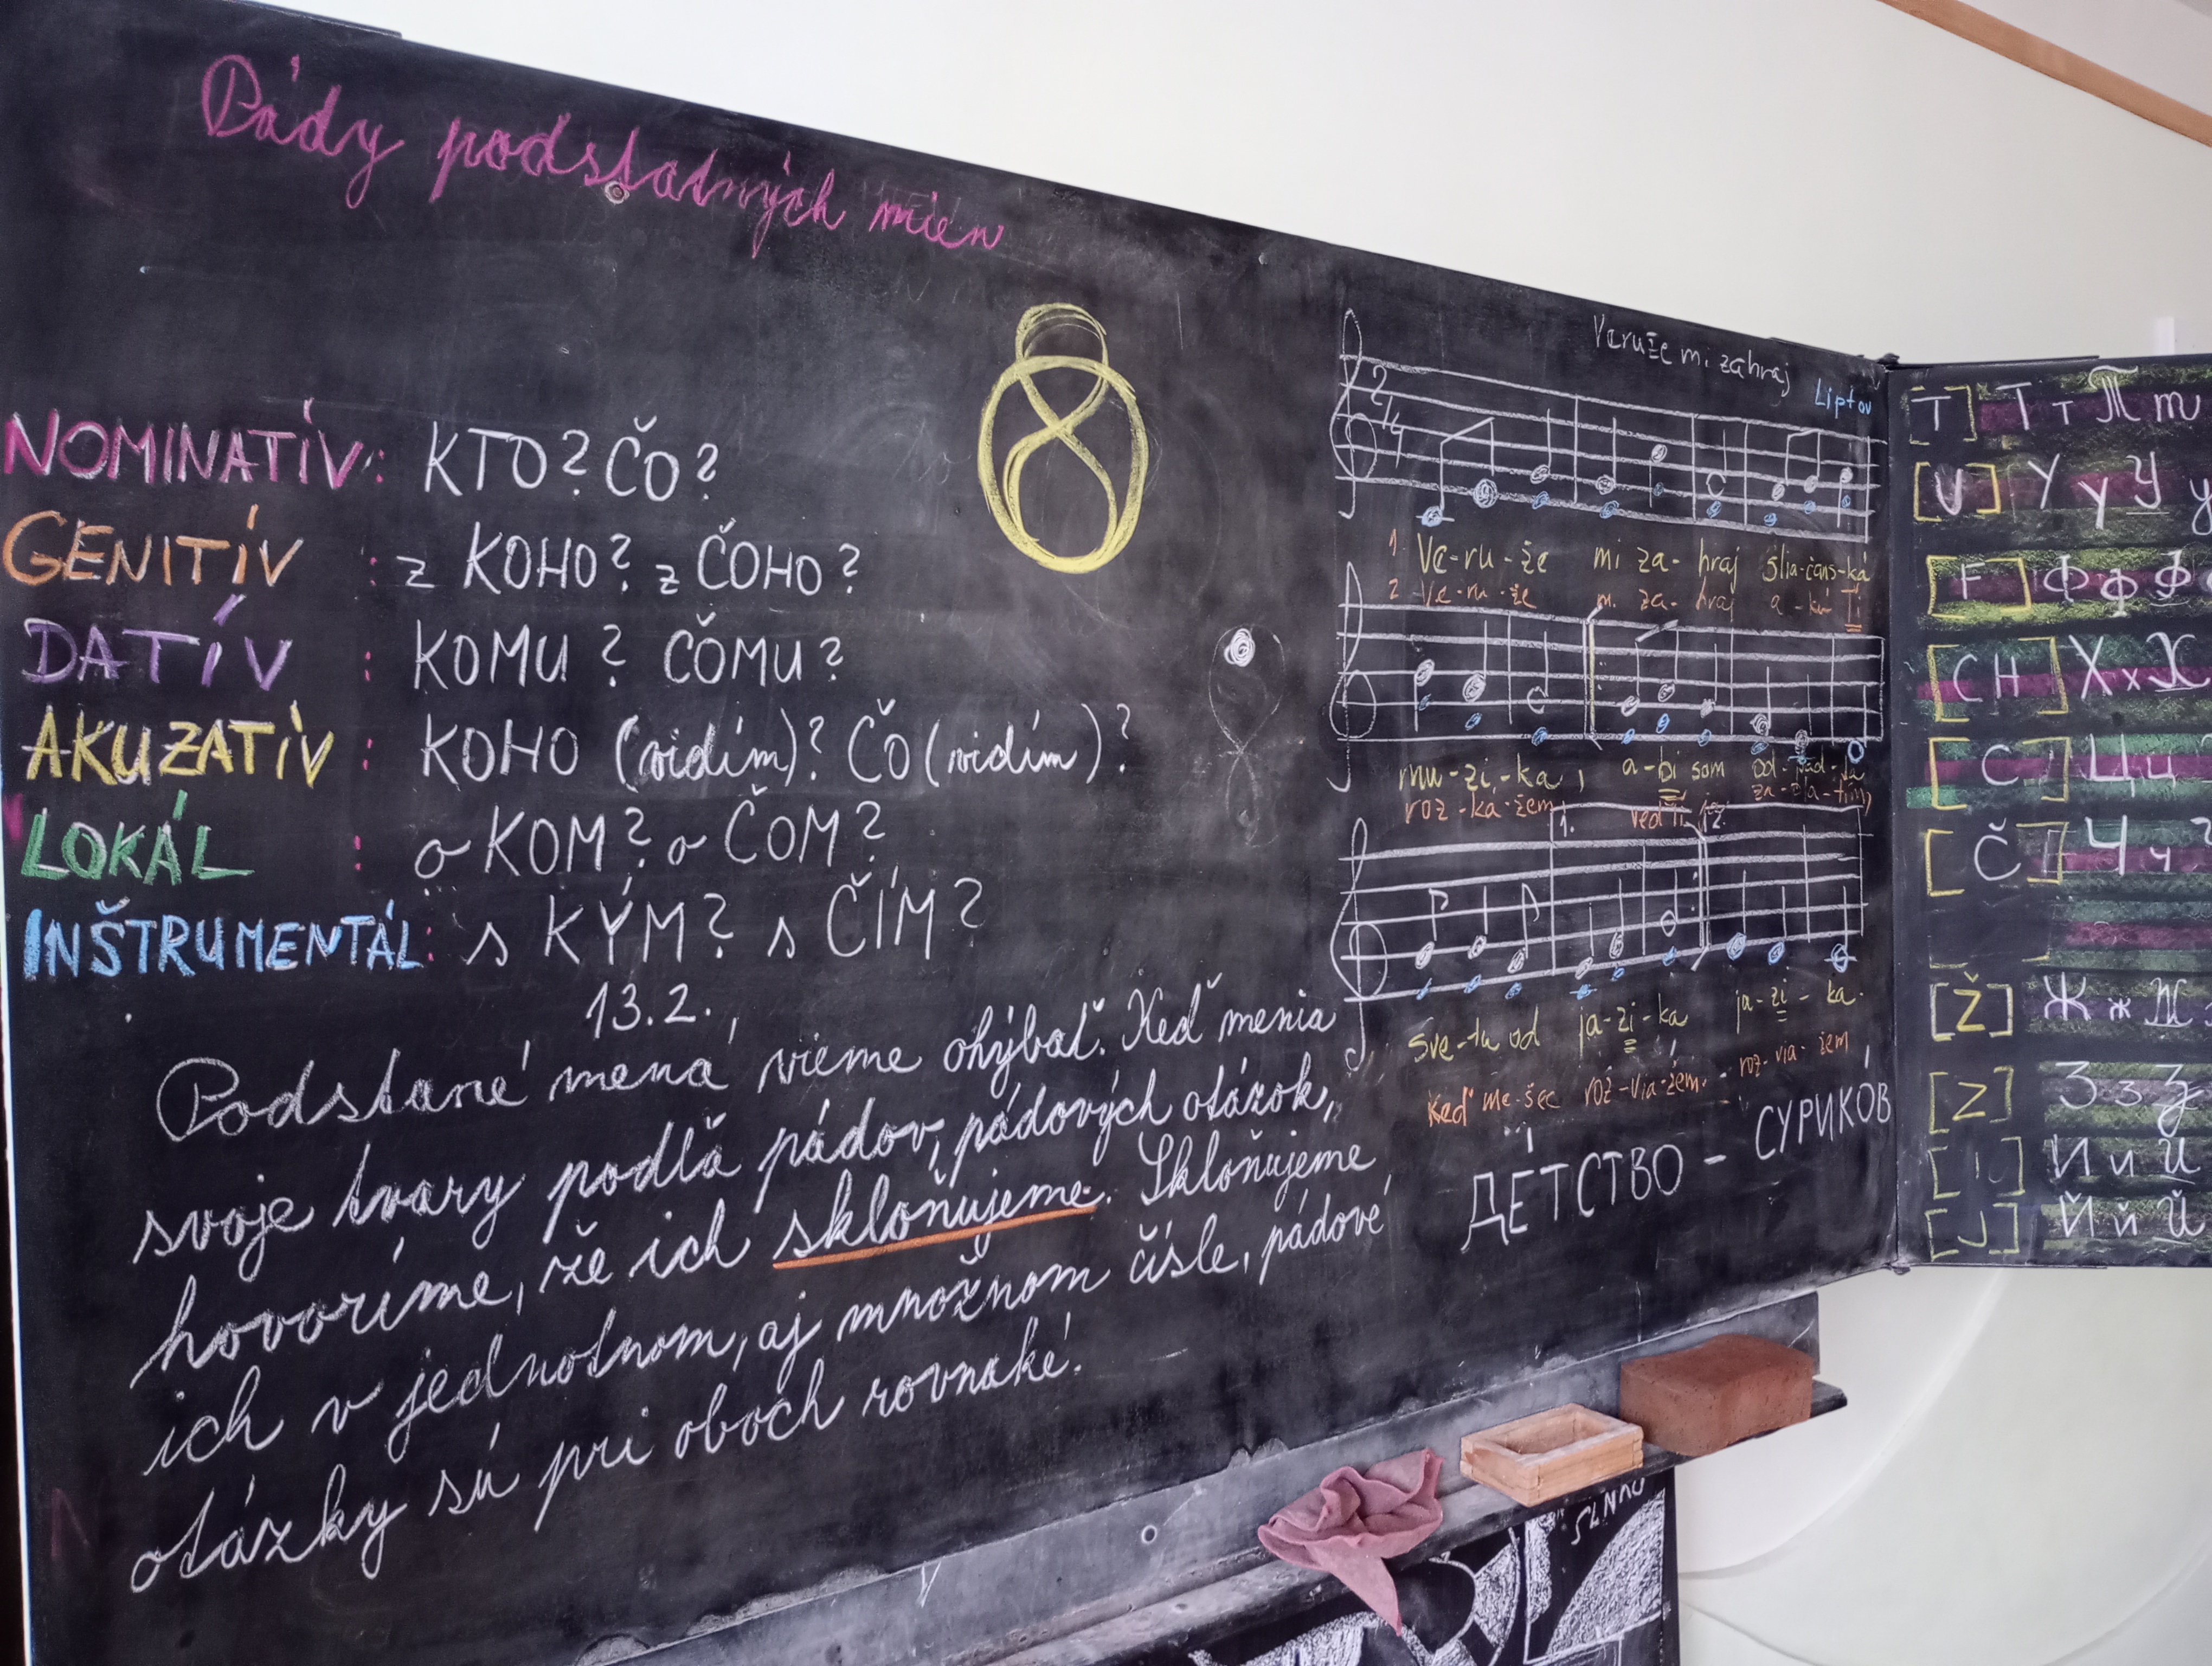 Pády podstatných mien
NOMINATÍV: KTO? ČO?
GENITÍV : z KOHO? z ČOHO?
DATÍV : KOMU? ČOMU?
AKUZATÍV : KOHO (vidím)? ČO (vidím)?
LOKÁL : o KOM? o ČOM?
INŠTRUMENTÁL: s KÝM? s ČÍM?
13.2.
Podstané mená vieme ohýbať. Keď menia
svoje tvary podľa pádov, pádových otázok,
hovoríme, že ich skloňujeme. Skloňujeme
ich v jednotnom, aj množnom čísle, pádové
otázky sú pri oboch rovnaké.
Veruže mi zahraj
Liptov
2/4
1. Ve-ru-že mi za-hraj šlia-čans-ká
2. Ve-ru-že mi za-hraj a-kú Ti
mu-zi-ka, a-bi som od-pad-la
roz-ka-žem, veď Ti ju za-pla-tím,
1. 2.
Sve-tu od ja-zi-ka ja-zi-ka.
Keď me-šec roz-via-žem. roz-via-žem
ДЕТСТВО - СУРИКОВ
[T] Т т Т т
[U] У у У у
[F] Ф ф Ф
[CH] Х х Х
[C] Ц ц
[Č] Ч ч
[Ž] Ж ж Ж
[Z] З з З
[I] И и И
[J] Й й Й
SLNKO